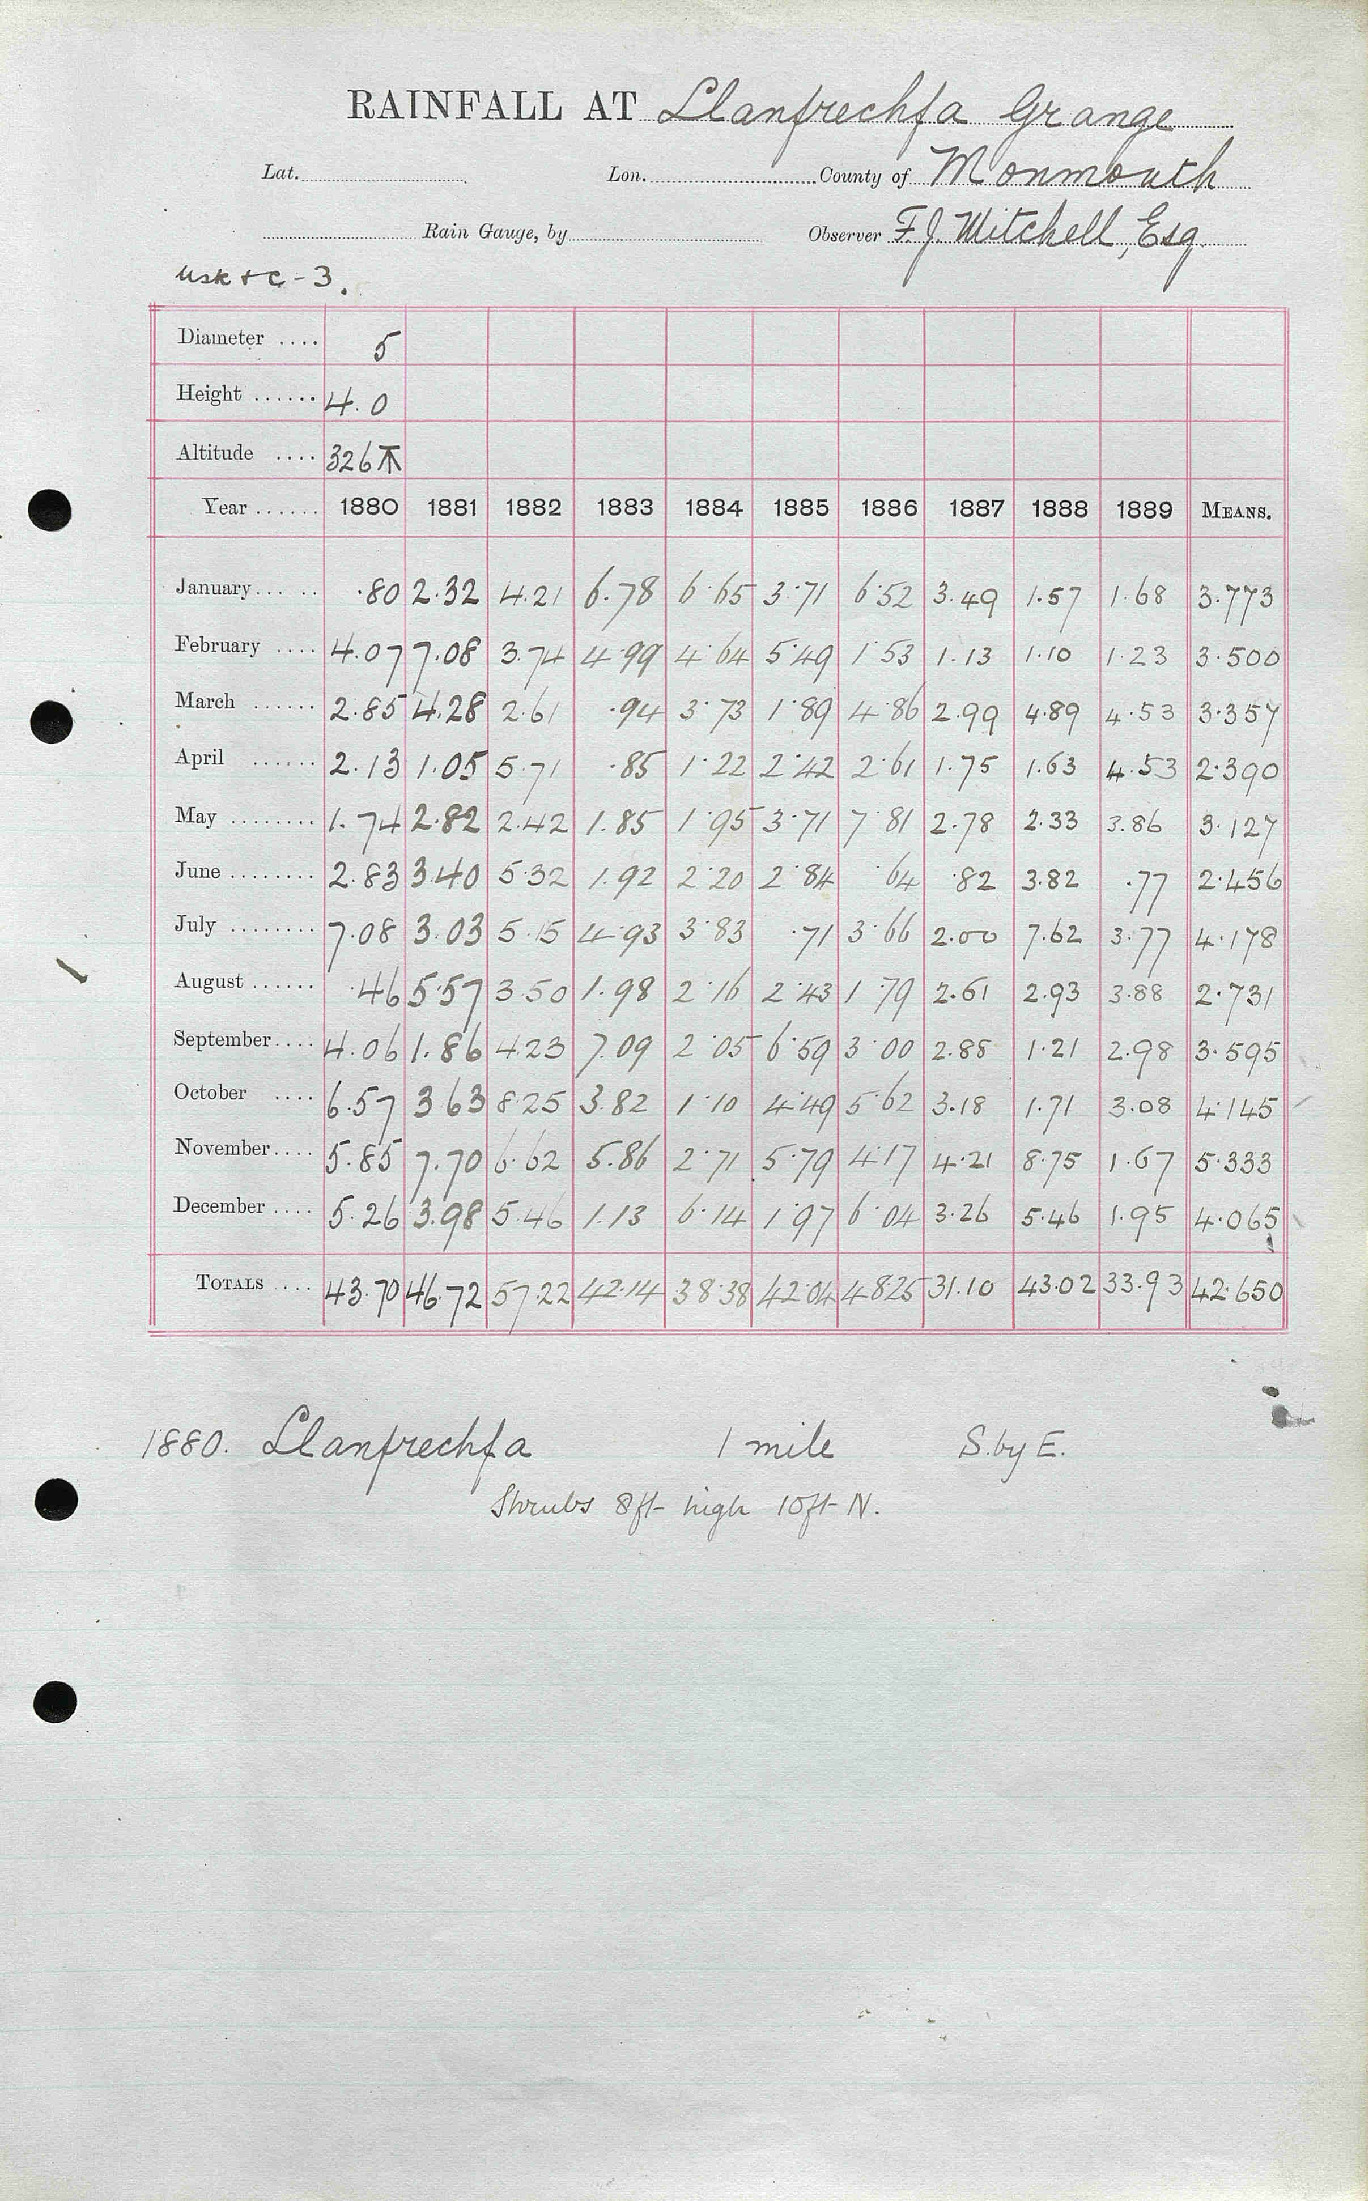 RAINFALL AT Llanfrechfa Grange
Lat. Lon. County of Monmouth
Rain Gauge, by Observer F. J. Mitchell, Esq.
Usk + C - 3.
Diameter .... 5
Height ...... 4.0
Altitude .... 326
Year ...... 1880 1881 1882 1883 1884 1885 1886 1887 1888 1889 MEANS.
January ..... .80 2.32 4.21 6.78 6.65 3.71 6.52 3.49 1.57 1.68 3.773
February .... 4.07 7.08 3.74 4.99 4.64 5.49 1.53 1.13 1.10 1.23 3.500
March ...... 2.85 4.28 2.61 .94 3.73 1.89 4.86 2.99 4.89 4.53 3.357
April ...... 2.13 1.05 5.71 .85 1.22 2.42 2.61 1.75 1.63 4.53 2.390
May ........ 1.74 2.82 2.42 1.85 1.95 3.71 7.81 2.78 2.33 3.86 3.127
June ........ 2.83 3.40 5.32 1.92 2.20 2.84 .64 .82 3.82 .77 2.456
July ........ 7.08 3.03 5.15 4.93 3.83 .71 3.66 2.00 7.62 3.77 4.178
August ...... .46 5.57 3.50 1.98 2.16 2.43 1.79 2.61 2.93 3.88 2.731
September .... 4.06 1.86 4.23 7.09 2.05 6.59 3.00 2.88 1.21 2.98 3.595
October .... 6.57 3.63 8.25 3.82 1.10 4.49 5.62 3.18 1.71 3.08 4.145
November .... 5.85 7.70 6.62 5.86 2.71 5.79 4.17 4.21 8.75 1.67 5.333
December .... 5.26 3.98 5.46 1.13 6.14 1.97 6.04 3.26 5.46 1.95 4.065
TOTALS .... 43.70 46.72 57.22 42.14 38.38 42.04 48.25 31.10 43.02 33.93 42.650
1880. Llanfrechfa 1 mile S. by E.
Shrubs 8ft high 10ft N.